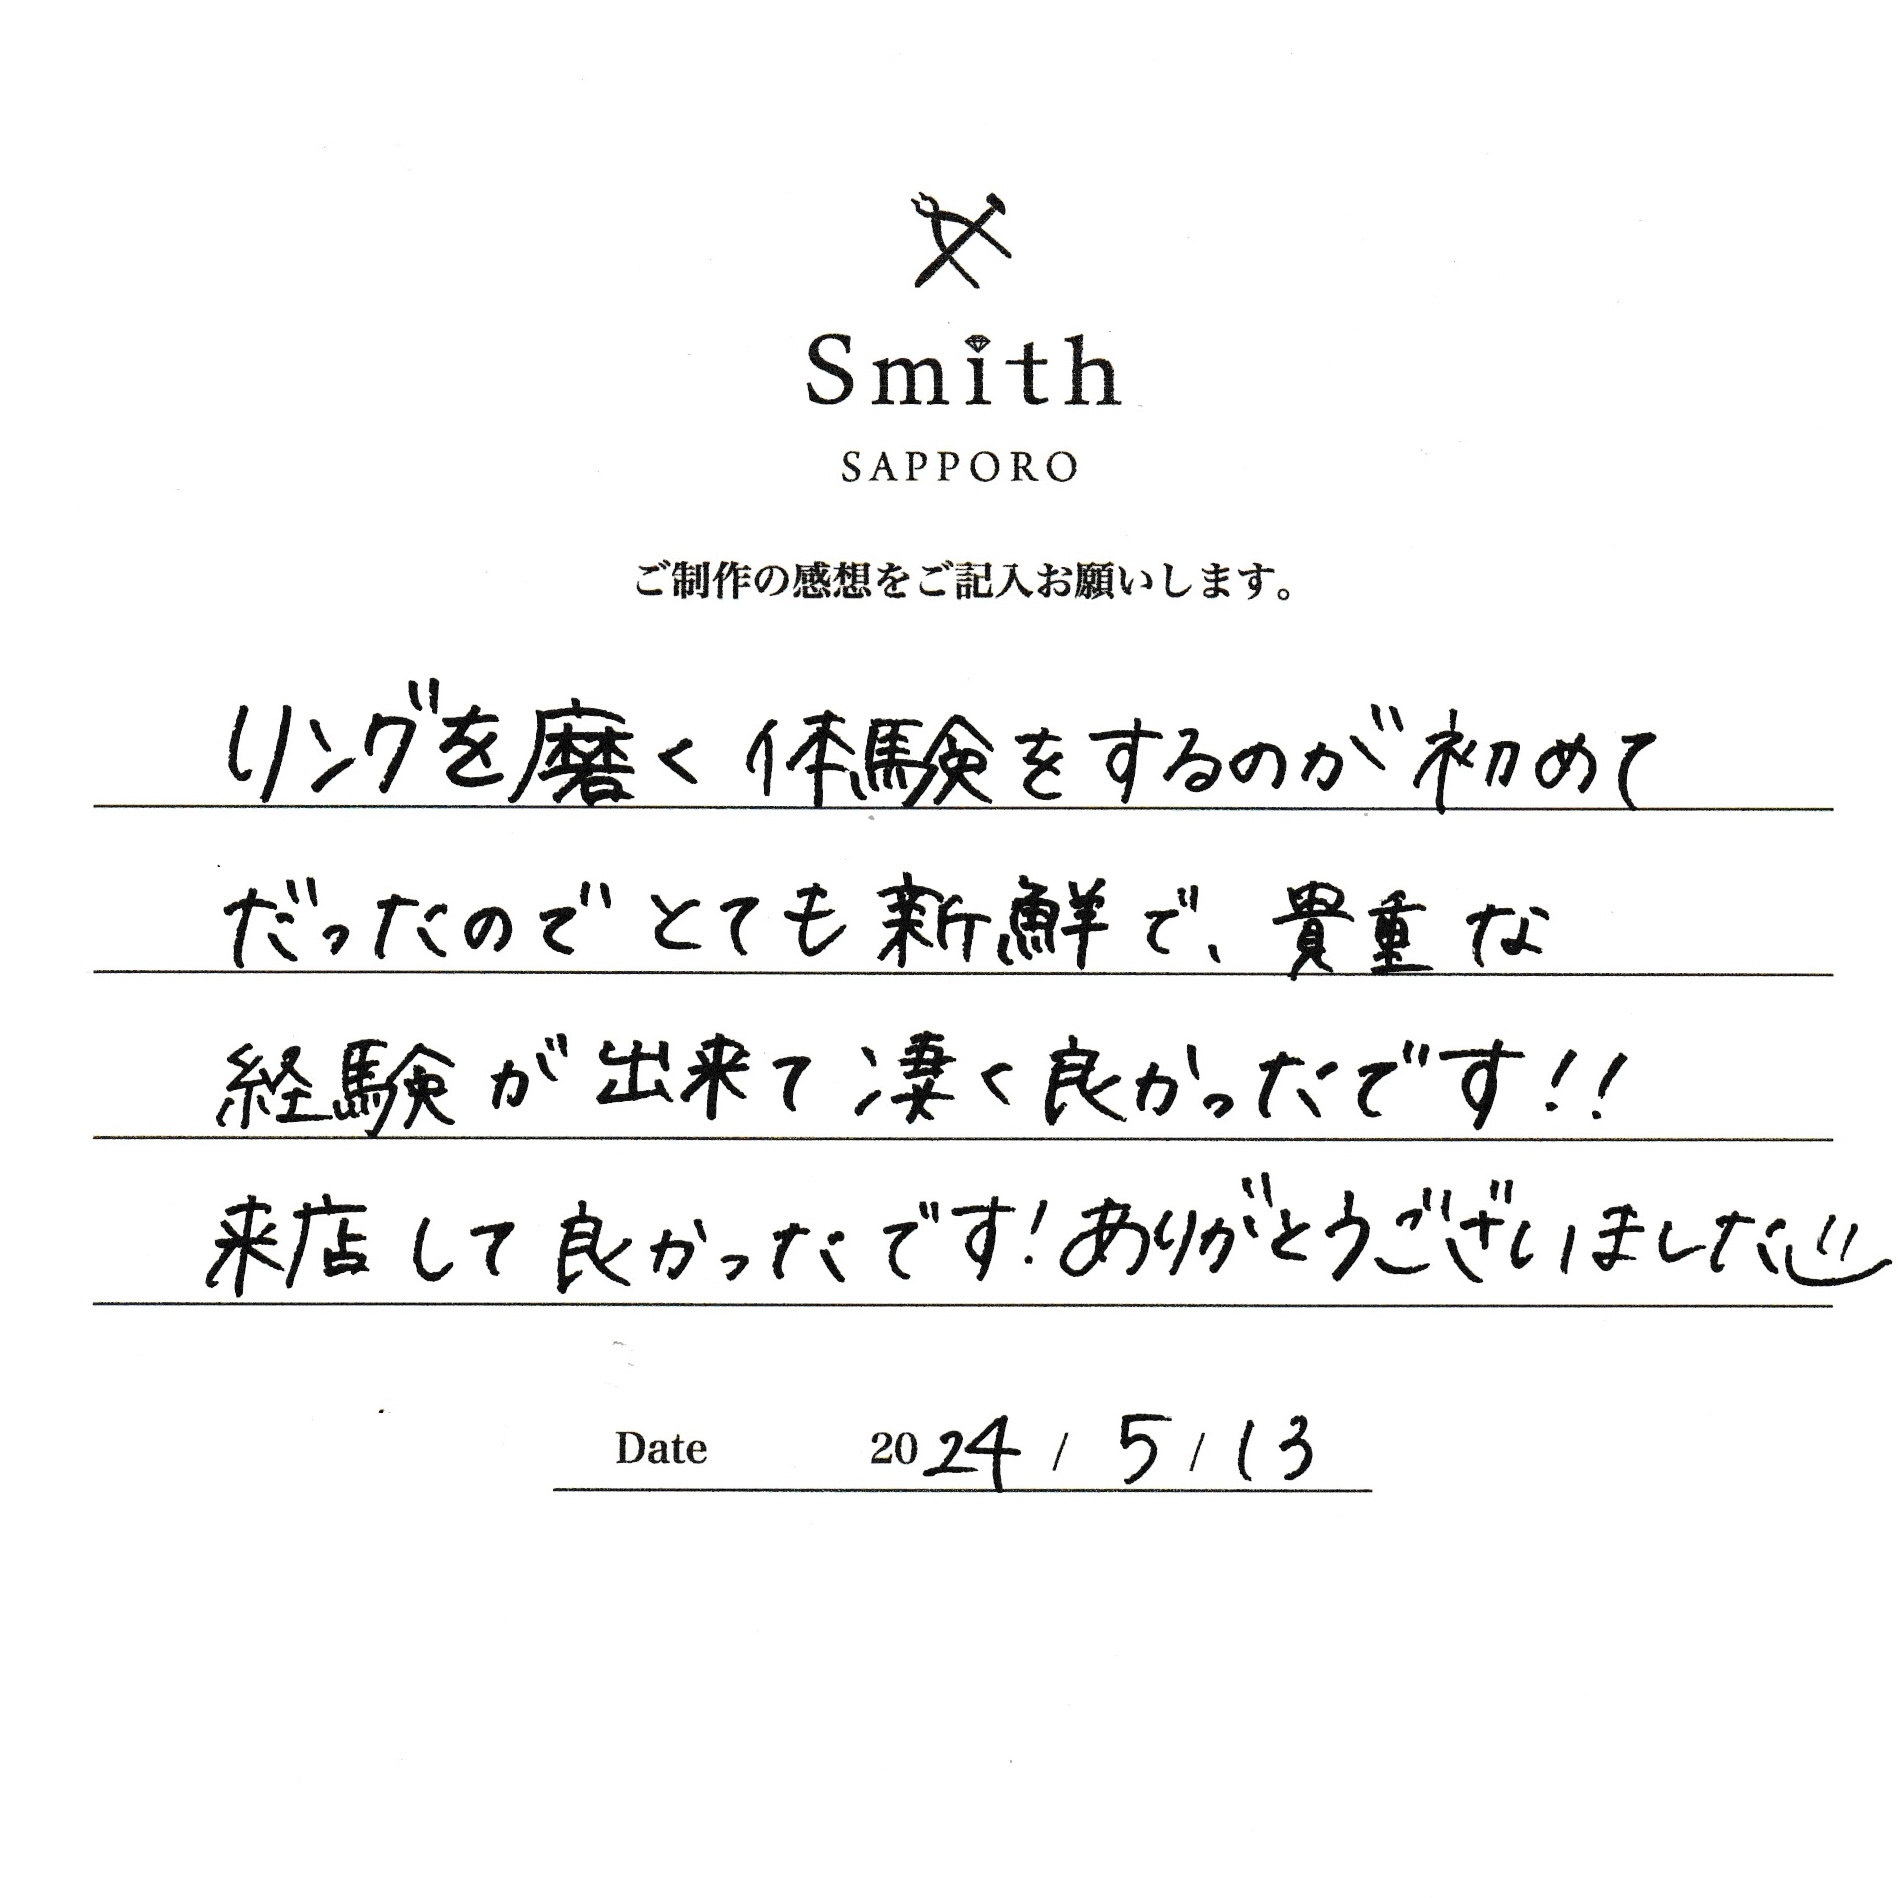 Smith
SAPPORO
ご制作の感想をご記入お願いします。
リングを磨く体験をするのが初めて
だったのでとても新鮮で、貴重な
経験が出来て凄く良かったです!!
来店して良かったです!ありがとうございました
Date 2024 / 5 / 13